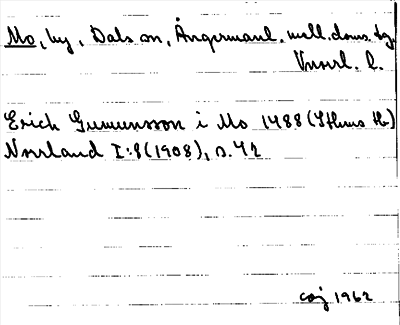 Mo, by, Dals sn, Ångermanl. mell. doms. sg.
Vnorrl. l.
Erich Gumunsson i Mo 1488 (Sthms Hb)
Norrland I:8 (1908), s. 42
1962